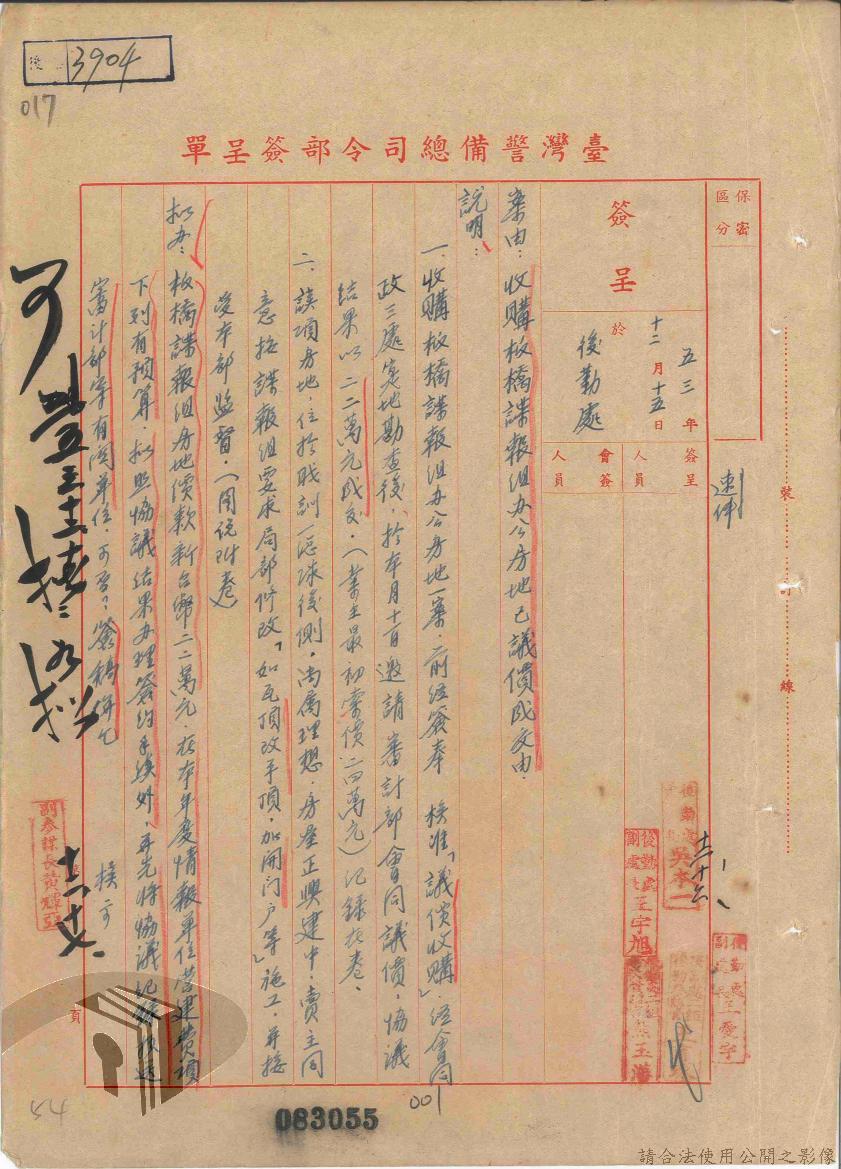 後 3904
017
臺灣警備總司令部簽呈單
保密區分
速件
裝 訂 線
簽呈
五三年十二月十五日
於 後勤處
簽呈人員
會簽人員
案由：收購板橋諜報組辦公房地已議價成交由．
說明：
一、收購板橋諜報組辦公房地一案，前經簽奉 核准「議價收購」經會同
政三處實地勘查後，於本月十一日邀請審計部會同議價，協議
結果以二二萬元成交．（業主最初索價二四萬元）紀錄在卷．
二、該項房地，位於職訓一總隊後側，尚屬理想，房屋正興建中，賣主同
意按諜報組要求局部修改「如瓦頂改平頂，加開門戶等」施工，並接
受本部監督．（圖說附卷）
拟办：板橋諜報組房地價款新台幣二二萬元．在本年度情報單位營建費項
下列有預算．拟照協議結果办理簽約手續外，再先將協議紀錄
審計部等有關單位．可否？簽稿併乞
核示
可
副參謀長黃輝亞
十二、十七
後勤處
吳本一
十二、十六
後勤處副處長王宇旭
頁
083055
001
54
請合法使用公開之影像